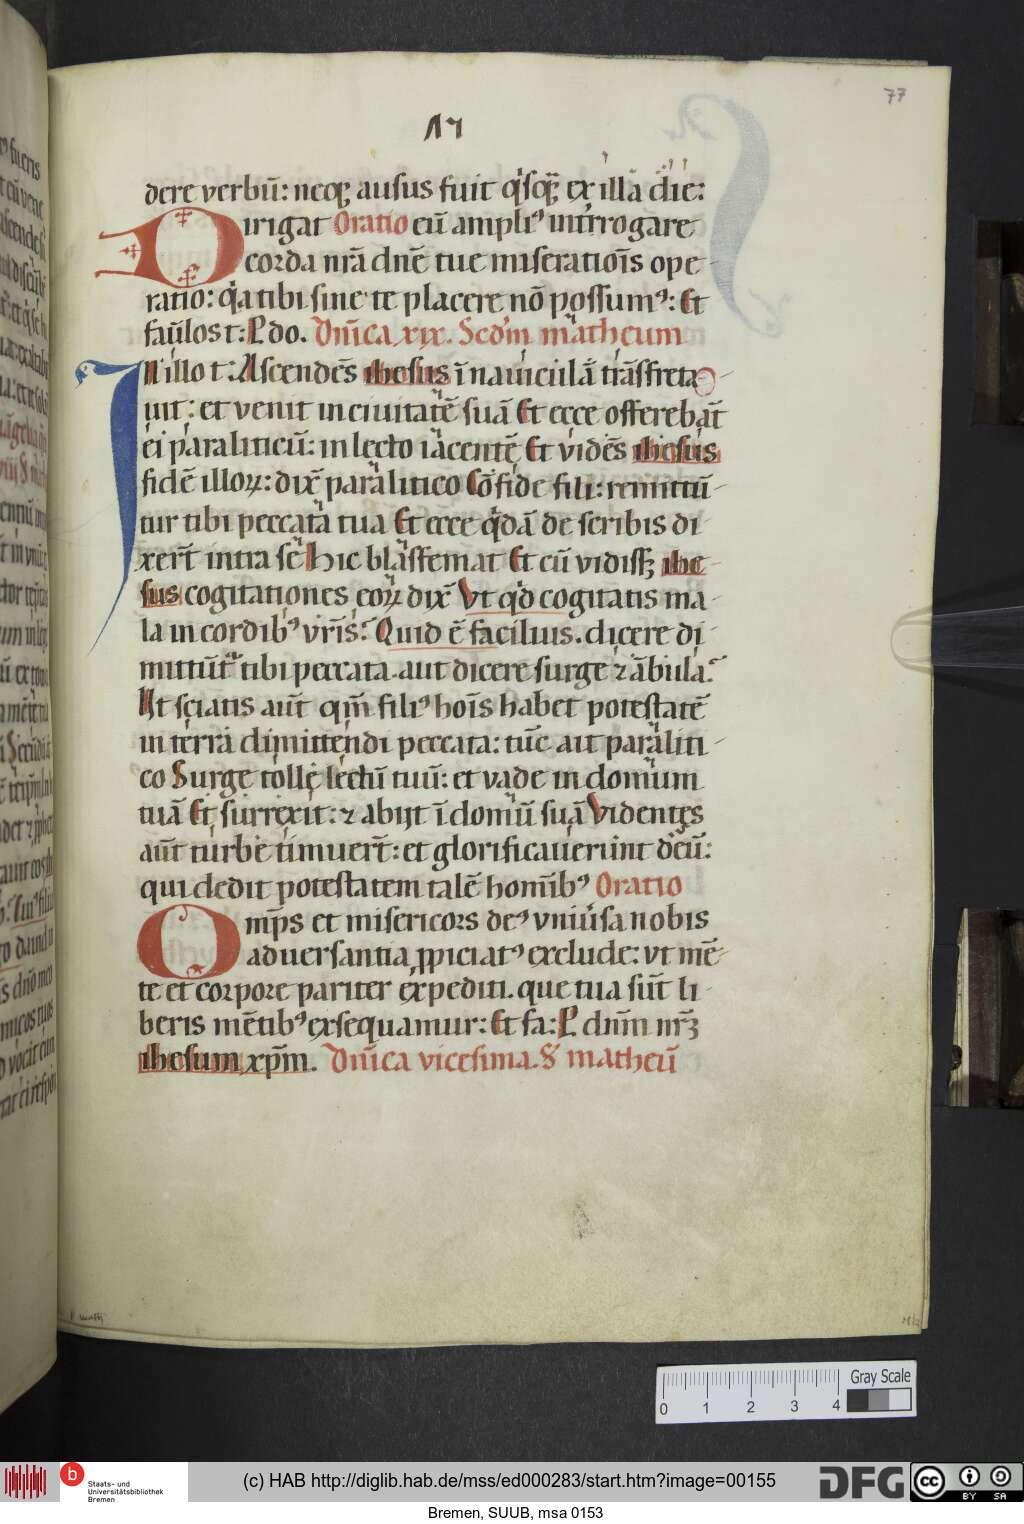 77
dere verbū: neq; ausus fuit q̇sq̄; ex illa die:
Dirigat Oratio eū ampliꝰ int̄rogare
corda nr̄a dn̄e tue miseratiōis ope-
ratio: q̇a tibi sine te placere nō possumꝰ: Et
faūlos t: P do. Dn̄ica xix. Secd̄m matheum
In illo t: Ascendēs ihesus ī nauiculā trāsfreta-
uit: et venit in ciuitatē suā Et ecce offerebāt
ei paraliticū: in lecto iacentē Et vidēs ihesus
fidē illoꝝ: dix̄ paralitico Cōfide fili: remittū-
tur tibi peccata tua Et ecce q̇dā de scribis di-
xer̄t intra se Hic blasfemat Et cū vidiss; ihe-
sus cogitationes eoꝝ dix̄ Vt q̇d cogitatis ma-
la in cordibꝰ vr̄is? Quid ē facilius. dicere di-
mittūt᷑ tibi peccata. aut dicere surge ⁊ ābula?
Ut sciatis aūt qm̄ filiꝰ hoīs habet potestatē
in terra dimittendi peccata: tūc ait paraliti-
co Surge tolle lectū tuū: et vade in domum
tuā Et surrexit: ⁊ abijt ī domū suā Videntes
aūt turbe timuer̄t: et glorificauerunt deū:
qui dedit potestatem talē homībꝰ Oratio
Omp̄s et misericors deꝰ vniūsa nobis
aduersantia ꝓpiciatꝰ exclude: vt mē-
te et corpore pariter expediti. que tua sūt li-
beris mētibꝰ exsequamur: Et fa: P dnm̄ nr̄ꝫ
ihesum xp̄m. Dn̄ica vicesima. S' matheū
0 1 2 3 4 Gray Scale
b Staats- und
Universitätsbibliothek
Bremen
(c) HAB http://diglib.hab.de/mss/ed000283/start.htm?image=00155
DFG
cc BY SA
Bremen, SUUB, msa 0153